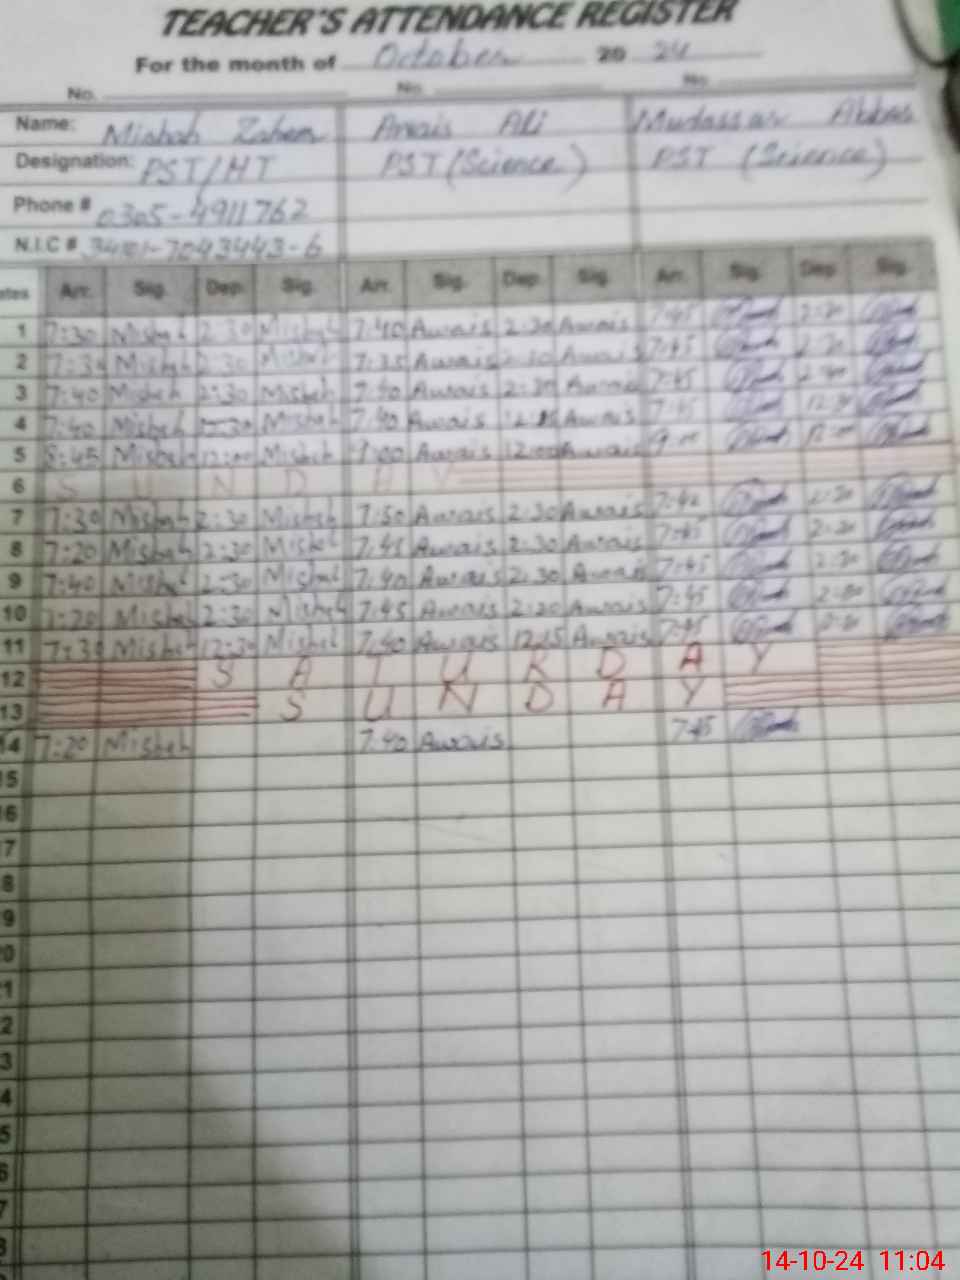 TEACHER'S ATTENDANCE REGISTER
For the month of October 20 24
No. No. No.
Name: Misbah Zaheer Awais Ali Mudassar Abbas
Designation: PST/HT PST (Science) PST (Science)
Phone # 0305-4911762
N.I.C #
Dates Arr. Sig. Dep. Sig. Arr. Sig. Dep. Sig. Arr. Sig. Dep. Sig.
1 7:30 Misbah 2:30 Misbah 7:40 Awais 2:30 Awais 7:45 2:30
2 7:30 Misbah 2:30 Misbah 7:35 Awais 2:30 Awais 7:45 2:30
3 7:40 Misbah 2:30 Misbah 7:40 Awais 2:30 Awais 7:45
4 7:40 Misbah Misbah 7:40 Awais Awais 7:45 12:30
5 8:45 Misbah 12:00 Misbah 9:00 Awais 12:00 Awais 9:00 12:00
6 S U N D A Y
7 7:30 Misbah 2:30 Misbah 7:50 Awais 2:30 Awais 2:30
8 7:20 Misbah 2:30 Misbah 7:45 Awais 2:30 Awais 7:45 2:30
9 7:40 Misbah 2:30 Misbah 7:40 Awais 2:30 Awais 7:45 2:30
10 7:20 Misbah 2:30 Misbah 7:45 Awais 2:30 Awais 7:45
11 7:30 Misbah 12:30 Misbah 7:40 Awais 12:15 Awais 7:45
12 S A T U R D A Y
13 S U N D A Y
14 7:20 Misbah 7:40 Awais 7:45
15
16
7
8
9
20
1
2
3
4
5
6
7
8
14-10-24 11:04